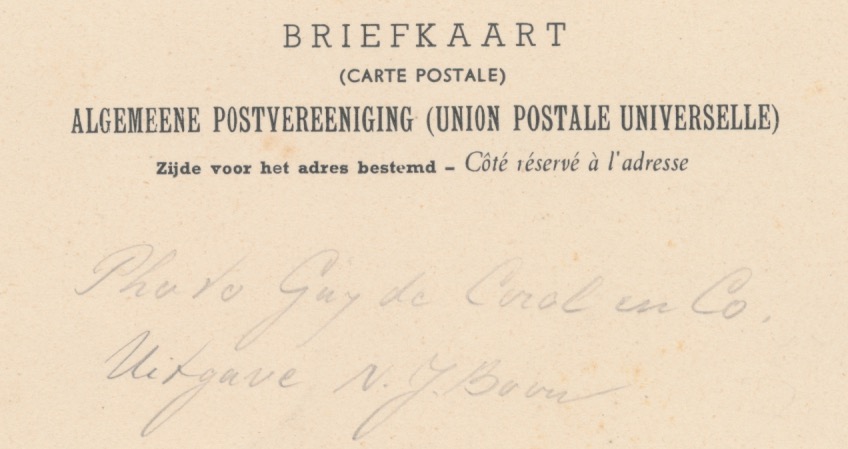 BRIEFKAART
(CARTE POSTALE)
ALGEMEENE POSTVEREENIGING (UNION POSTALE UNIVERSELLE)
Zijde voor het adres bestemd – Côté réservé à l'adresse
Photo Guy de Coral en Co.
Uitgave N. J. Boon